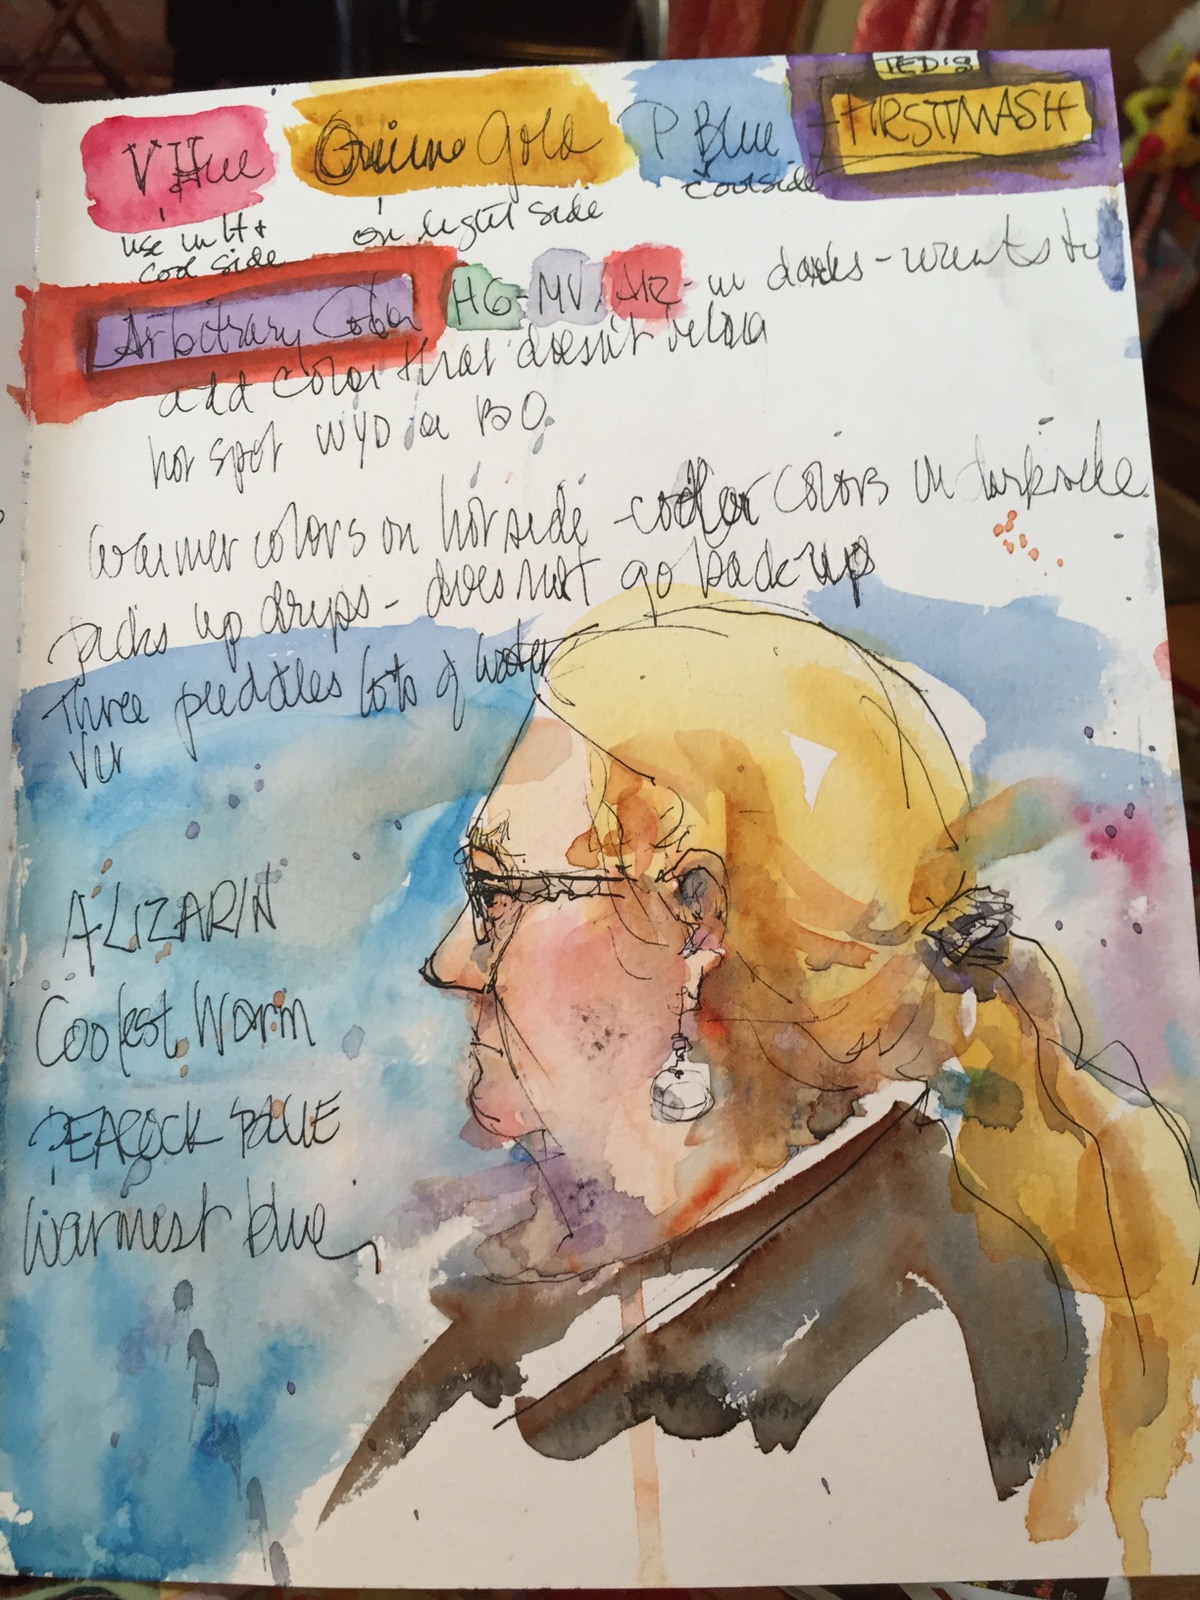 TED'S
V Hue
Gold
P Blue
FIRST WASH
use in lt +
cool side
on light side
coolside
Arbitrary Color HG-MV/ in darks - wants to
add color that doesn't
hot spot WYD or BO
warmer colors on hot side - cooler colors on darkside
picks up drips - does not go back up
Three puddles lots of water
Ver
ALIZARIN
Coolest Warm
PEACOCK BLUE
Warmest blue